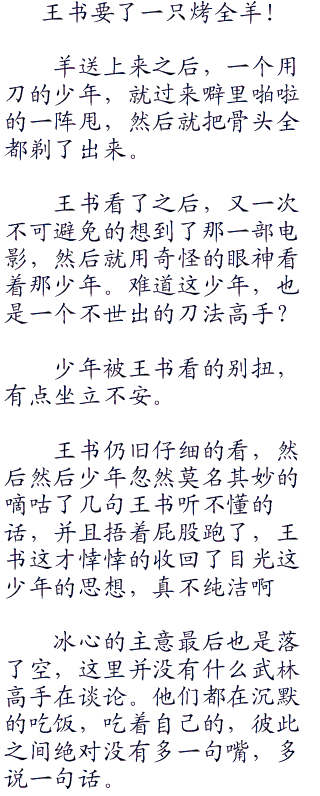 王书要了一只烤全羊！
羊送上来之后，一个用
刀的少年，就过来噼里啪啦
的一阵甩，然后就把骨头全
都剃了出来。
王书看了之后，又一次
不可避免的想到了那一部电
影，然后就用奇怪的眼神看
着那少年。难道这少年，也
是一个不世出的刀法高手？
少年被王书看的别扭，
有点坐立不安。
王书仍旧仔细的看，然
后然后少年忽然莫名其妙的
嘀咕了几句王书听不懂的
话，并且捂着屁股跑了，王
书这才悻悻的收回了目光这
少年的思想，真不纯洁啊
冰心的主意最后也是落
了空，这里并没有什么武林
高手在谈论。他们都在沉默
的吃饭，吃着自己的，彼此
之间绝对没有多一句嘴，多
说一句话。